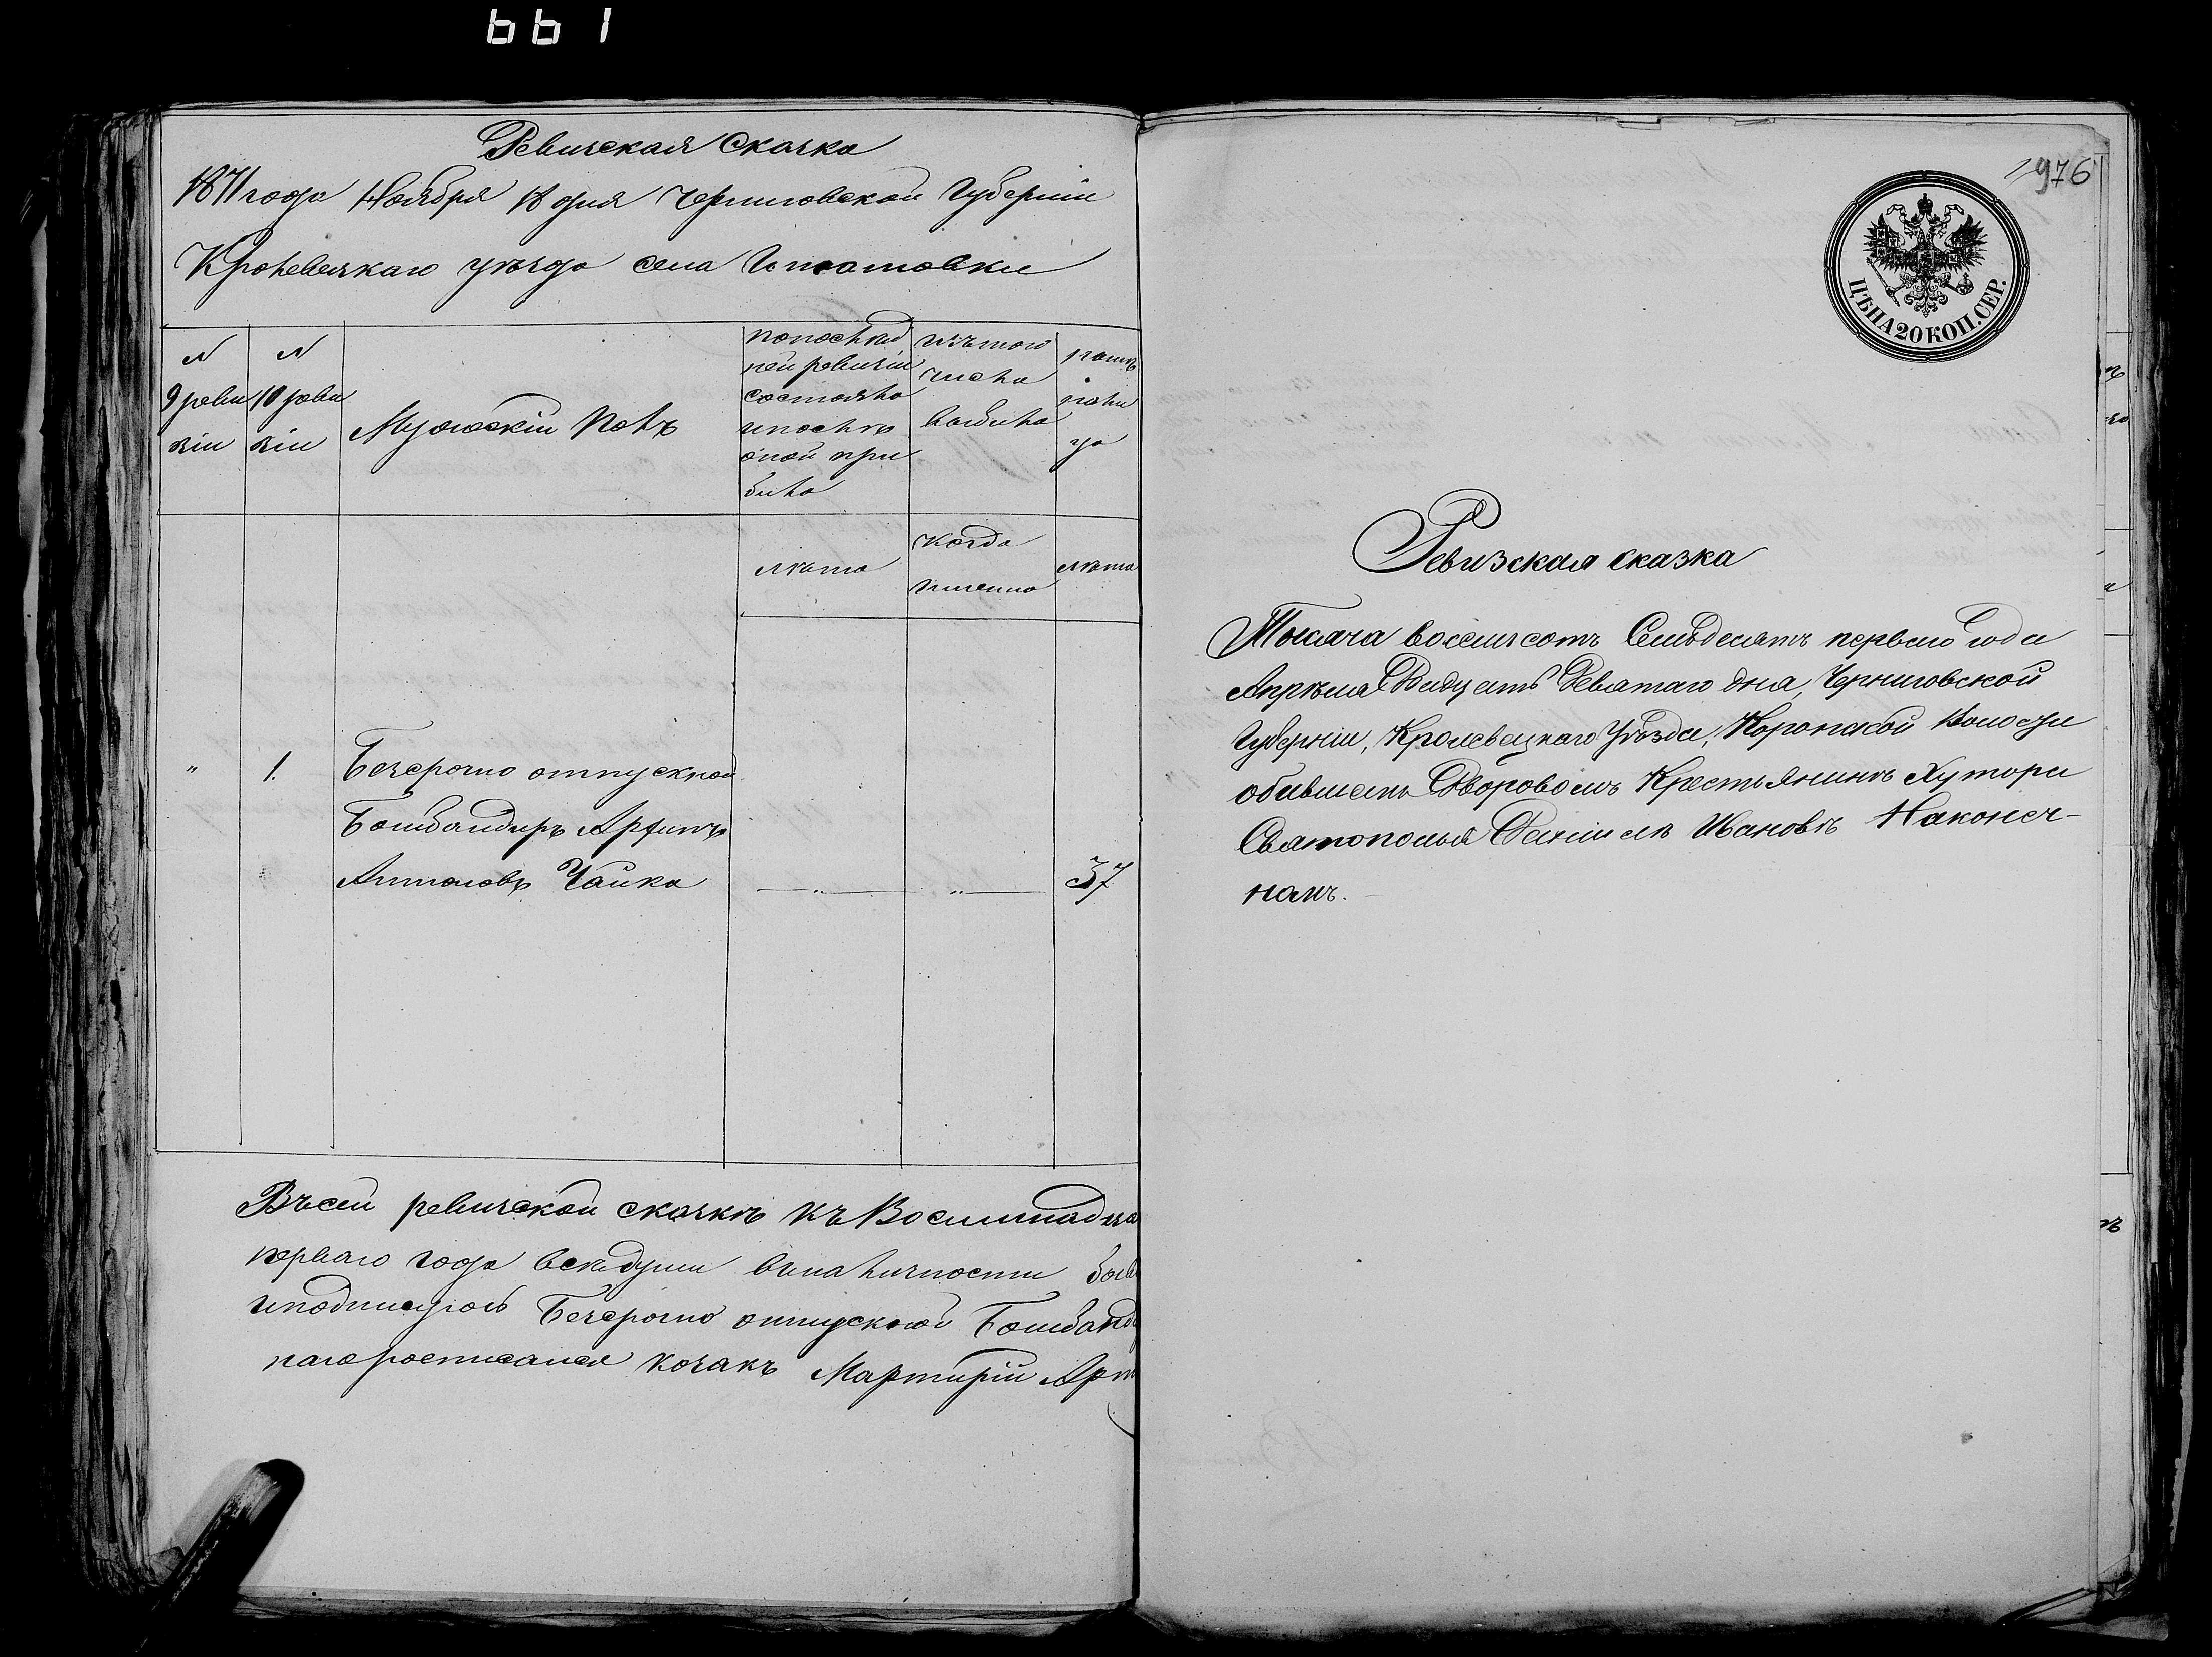 661
Ревизская Сказка
1871 года Ноября 18 дня Черниговской Губернiи
Кролевецкаго уѣзда села Игнатовки
N 9 ревизiи
N 10 ревизiи
Мужескiй полъ
по послѣдней ревизiи состояло и послѣ оной прибило
изъ того числа выбило
нынѣ на лицо
лѣта
когда именно
лѣта
" 1. Безсрочно отпускной
Бомбандиръ Архипъ
Антоновъ Чайка — " — — " — 37
Въсей ревизской сказкѣ къ Восимнадца
перваго года вскдуши вналичности
иподписуюсь Безсрочно отпускной Бомбанд
него росписался козакъ Мартирiй Арт
976
ЦѢНА 20 КОП. СЕР.
Ревизская сказка
Тысяча восемьсотъ Семьдесятъ перваго года
Апрѣля Двадцать Девятаго дня, Черниговской
Губернiи, Кролевецкаго Уѣзда, Коропской Волости
обывшемъ Дворовомъ Крестьянинѣ Хутора
Святополья Данiилѣ Ивановѣ Наконеч-
номъ.